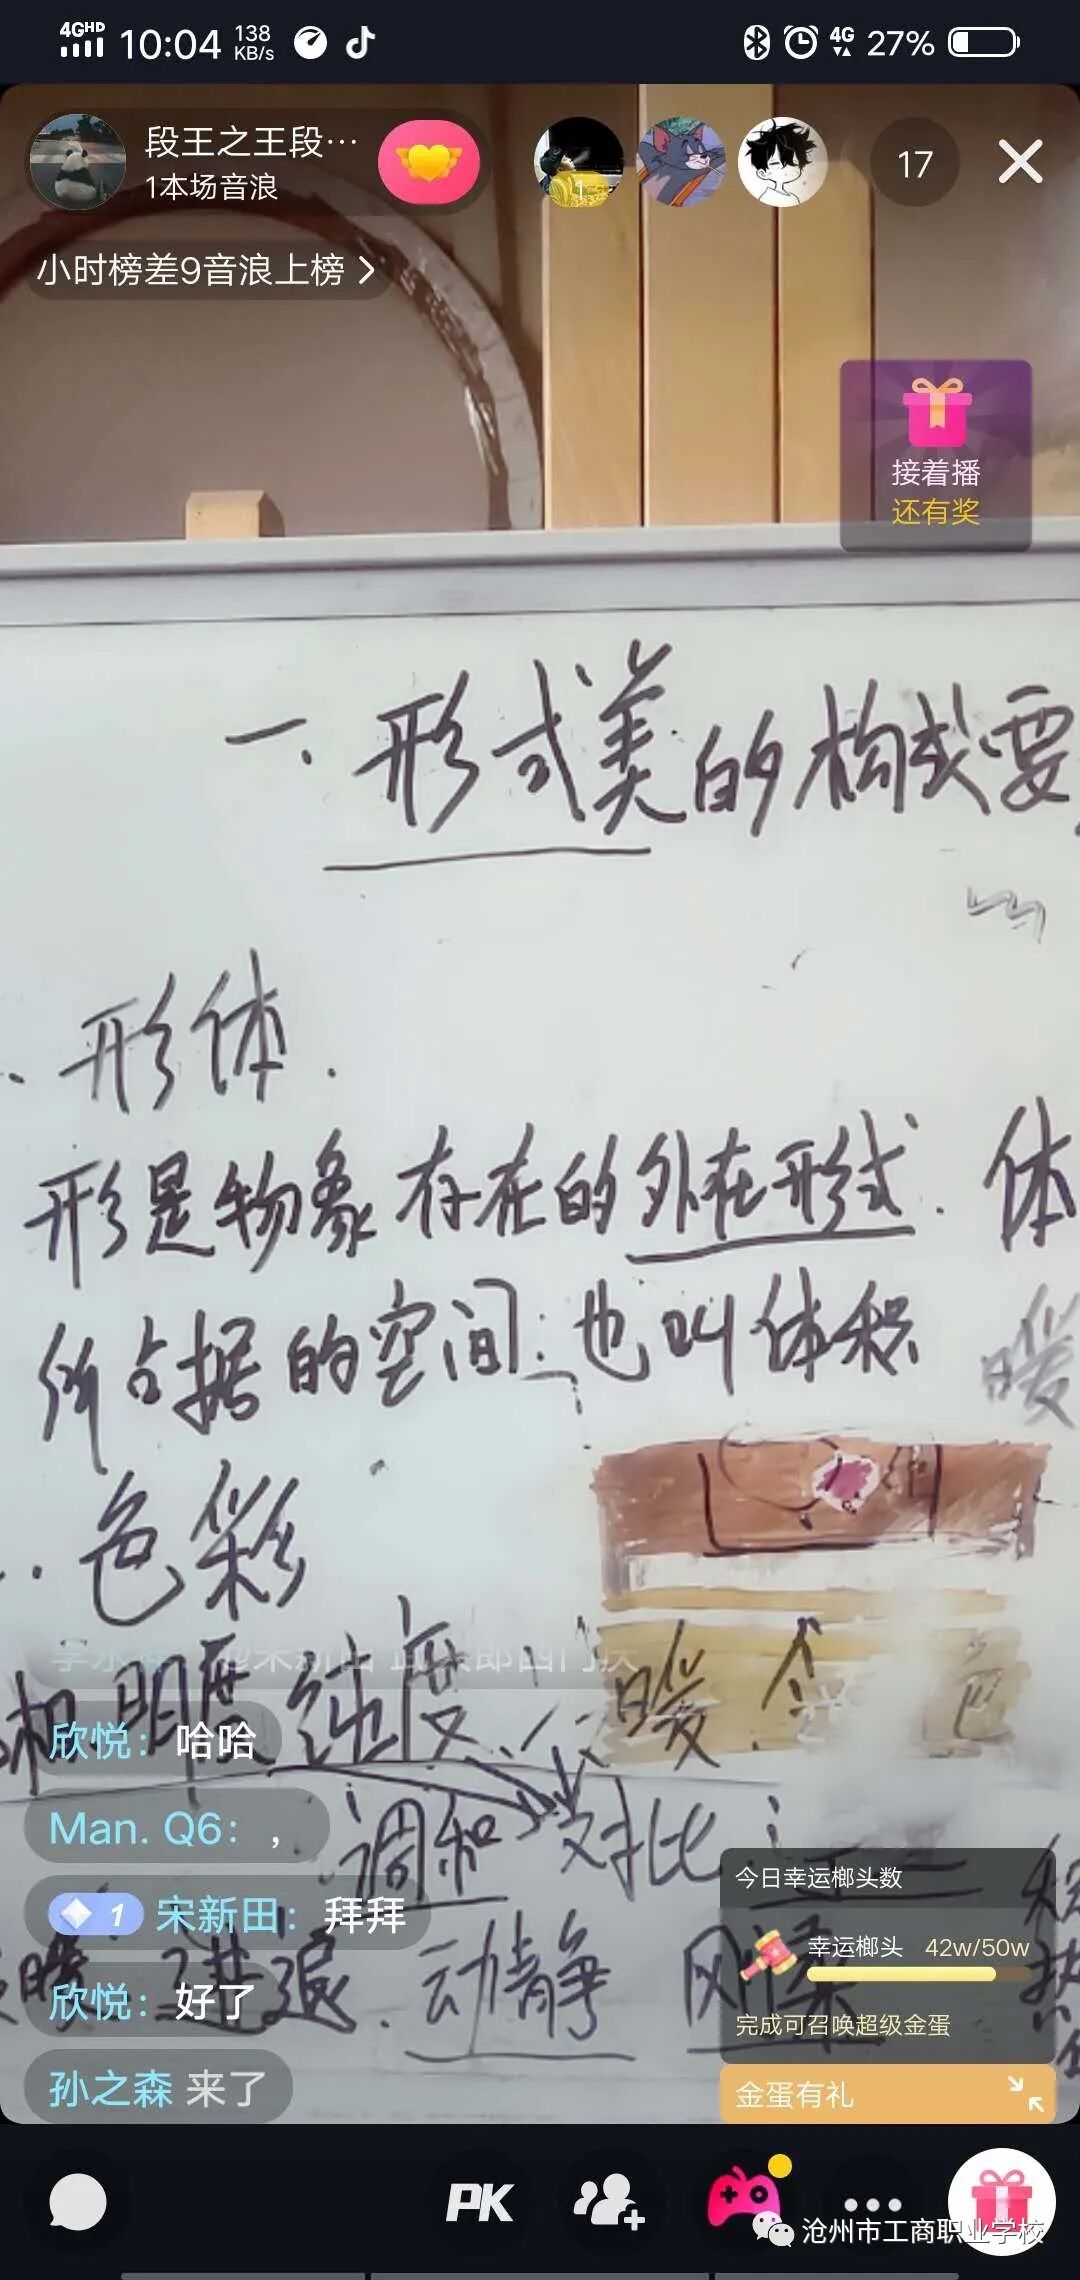 4GHD 10:04 138 KB/s 4G 27%
段王之王段…
1本场音浪
1
17
小时榜差9音浪上榜
接着播
还有奖
一.形式美的构成要
形体.
形是物象存在的外在形式. 体
所占据的空间:也叫体积
暖
色彩
相.明度 纯度. 暖. 色
欣悦: 哈哈
调和 对比
Man. Q6: ,
今日幸运榔头数
1 宋新田: 拜拜
幸运榔头 42w/50w
暖 进退. 动静 刚柔
欣悦: 好了
完成可召唤超级金蛋
孙之森 来了
金蛋有礼
PK
沧州市工商职业学校